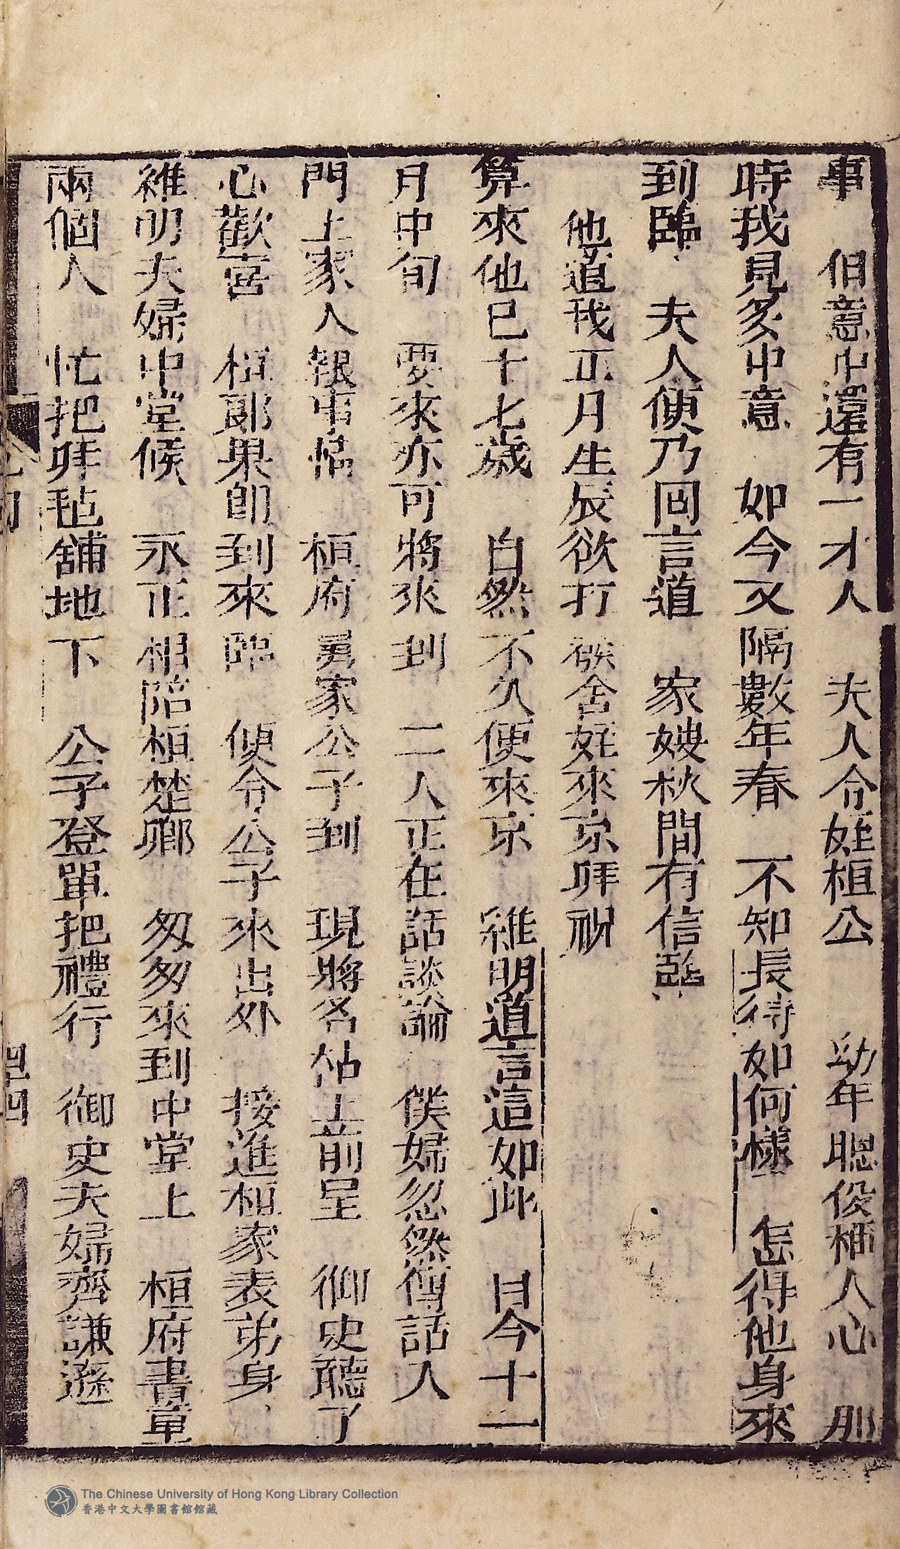 事 但意中還有一才人 夫人令姪桓公 幼年聰俊極人心 那
時我見多中意 如今又隔數年春 不知長得如何樣 怎得他身來
到臨 夫人便乃回言道 家嫂秋間有信臨
他道我正月生辰欲打 舍姪來京拜祝
算來他已十七歲 自然不久便來京 維明道言這如此 目今十一
月中旬 要來亦可將來到 二人正在話談論 僕婦忽然傳話人
門上家人報事情 桓府舅家公子到 現將名帖上前呈 御史聽了
心歡喜 桓郎果卽到來臨 便令公子來出外 接進桓家表弟身
維明夫婦中堂候 永正相陪桓楚卿 匆匆來到中堂上 桓府書童
兩個人 忙把拜毡舖地下 公子登單把禮行 御史夫婦齊謙遜
The Chinese University of Hong Kong Library Collection
香港中文大學圖書館館藏